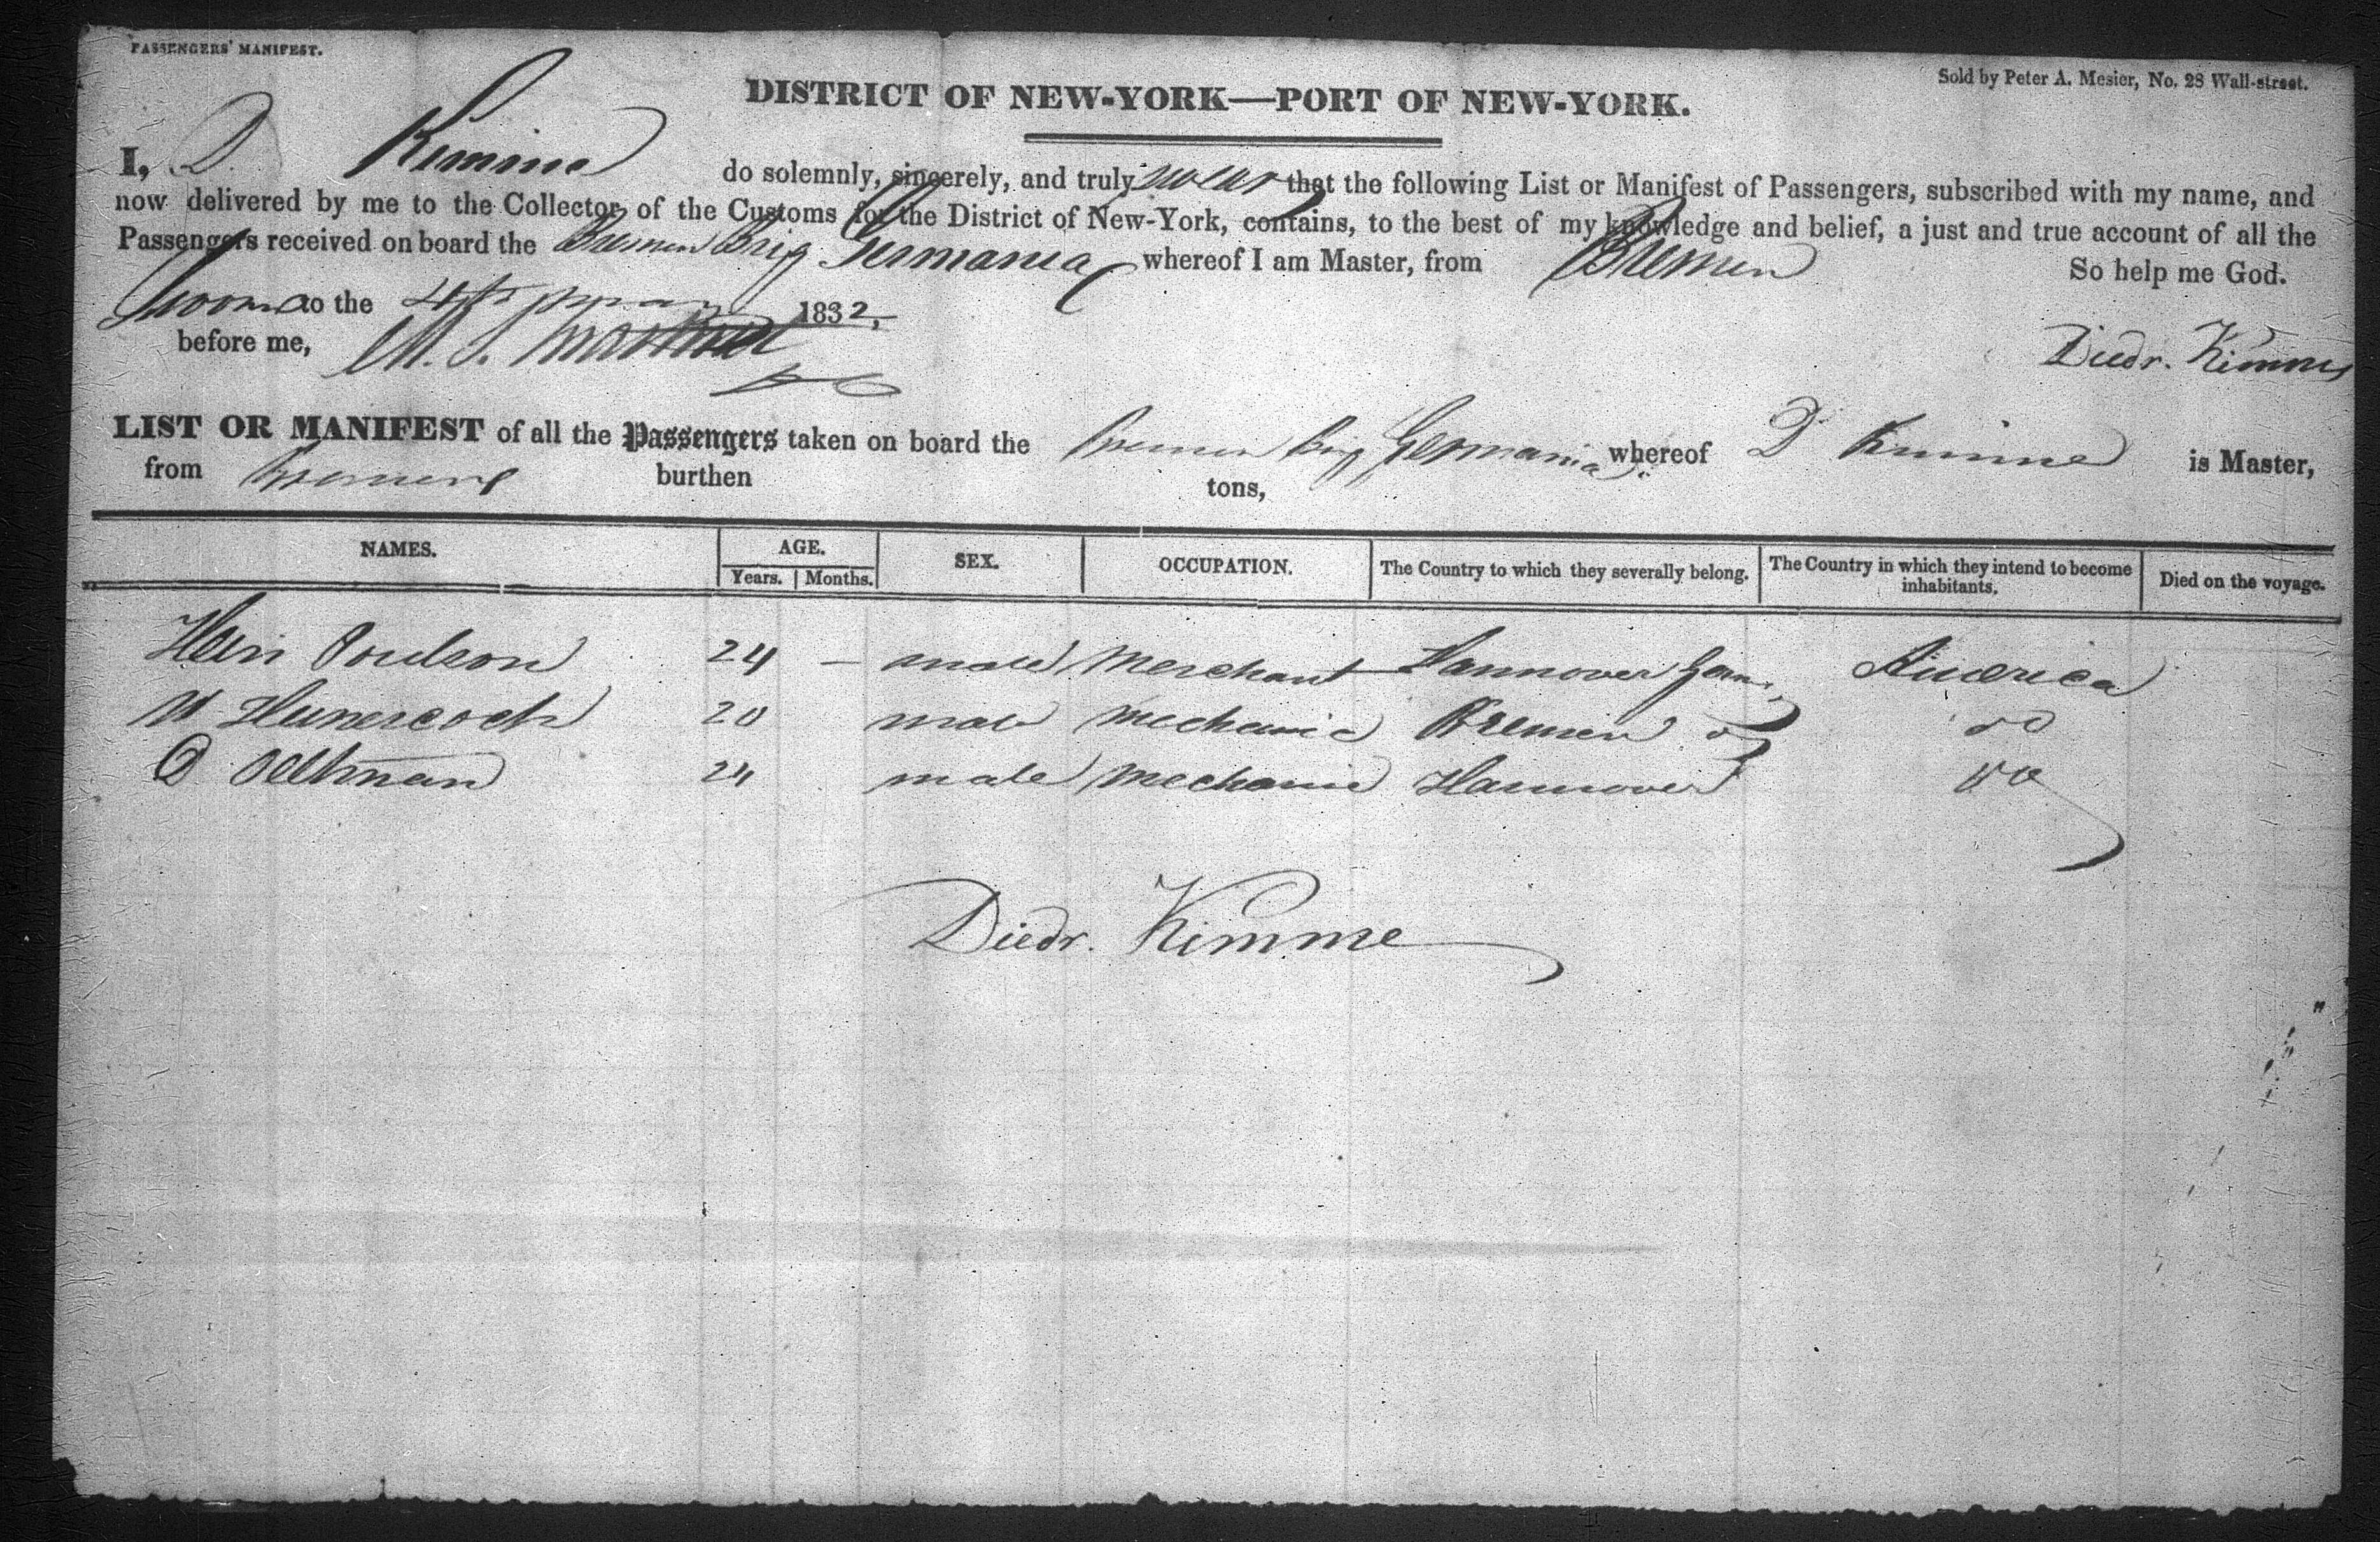 PASSENGERS' MANIFEST.
Sold by Peter A. Mesier, No. 28 Wall-street.
DISTRICT OF NEW-YORK—PORT OF NEW-YORK.
I, D Kimme do solemnly, sincerely, and truly swear that the following List or Manifest of Passengers, subscribed with my name, and
now delivered by me to the Collector of the Customs for the District of New-York, contains, to the best of my knowledge and belief, a just and true account of all the
Passengers received on board the Bremen Brig Germania whereof I am Master, from Bremen
So help me God.
Sworn to the 4th May 1832,
before me,
Diedr. Kimme
LIST OR MANIFEST of all the Passengers taken on board the Bremen Brig Germania whereof D Kimme is Master,
from Bremen burthen tons,
NAMES. AGE. SEX. OCCUPATION. The Country to which they severally belong. The Country in which they intend to become inhabitants. Died on the voyage.
Years. Months.
24 — male Merchant Hannover Germ. America
20 male mechanic Bremen do
D Oeltman 24 male mechanic Hannover do
Diedr. Kimme